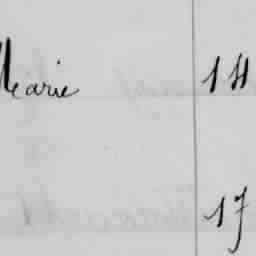 Marie 14
17